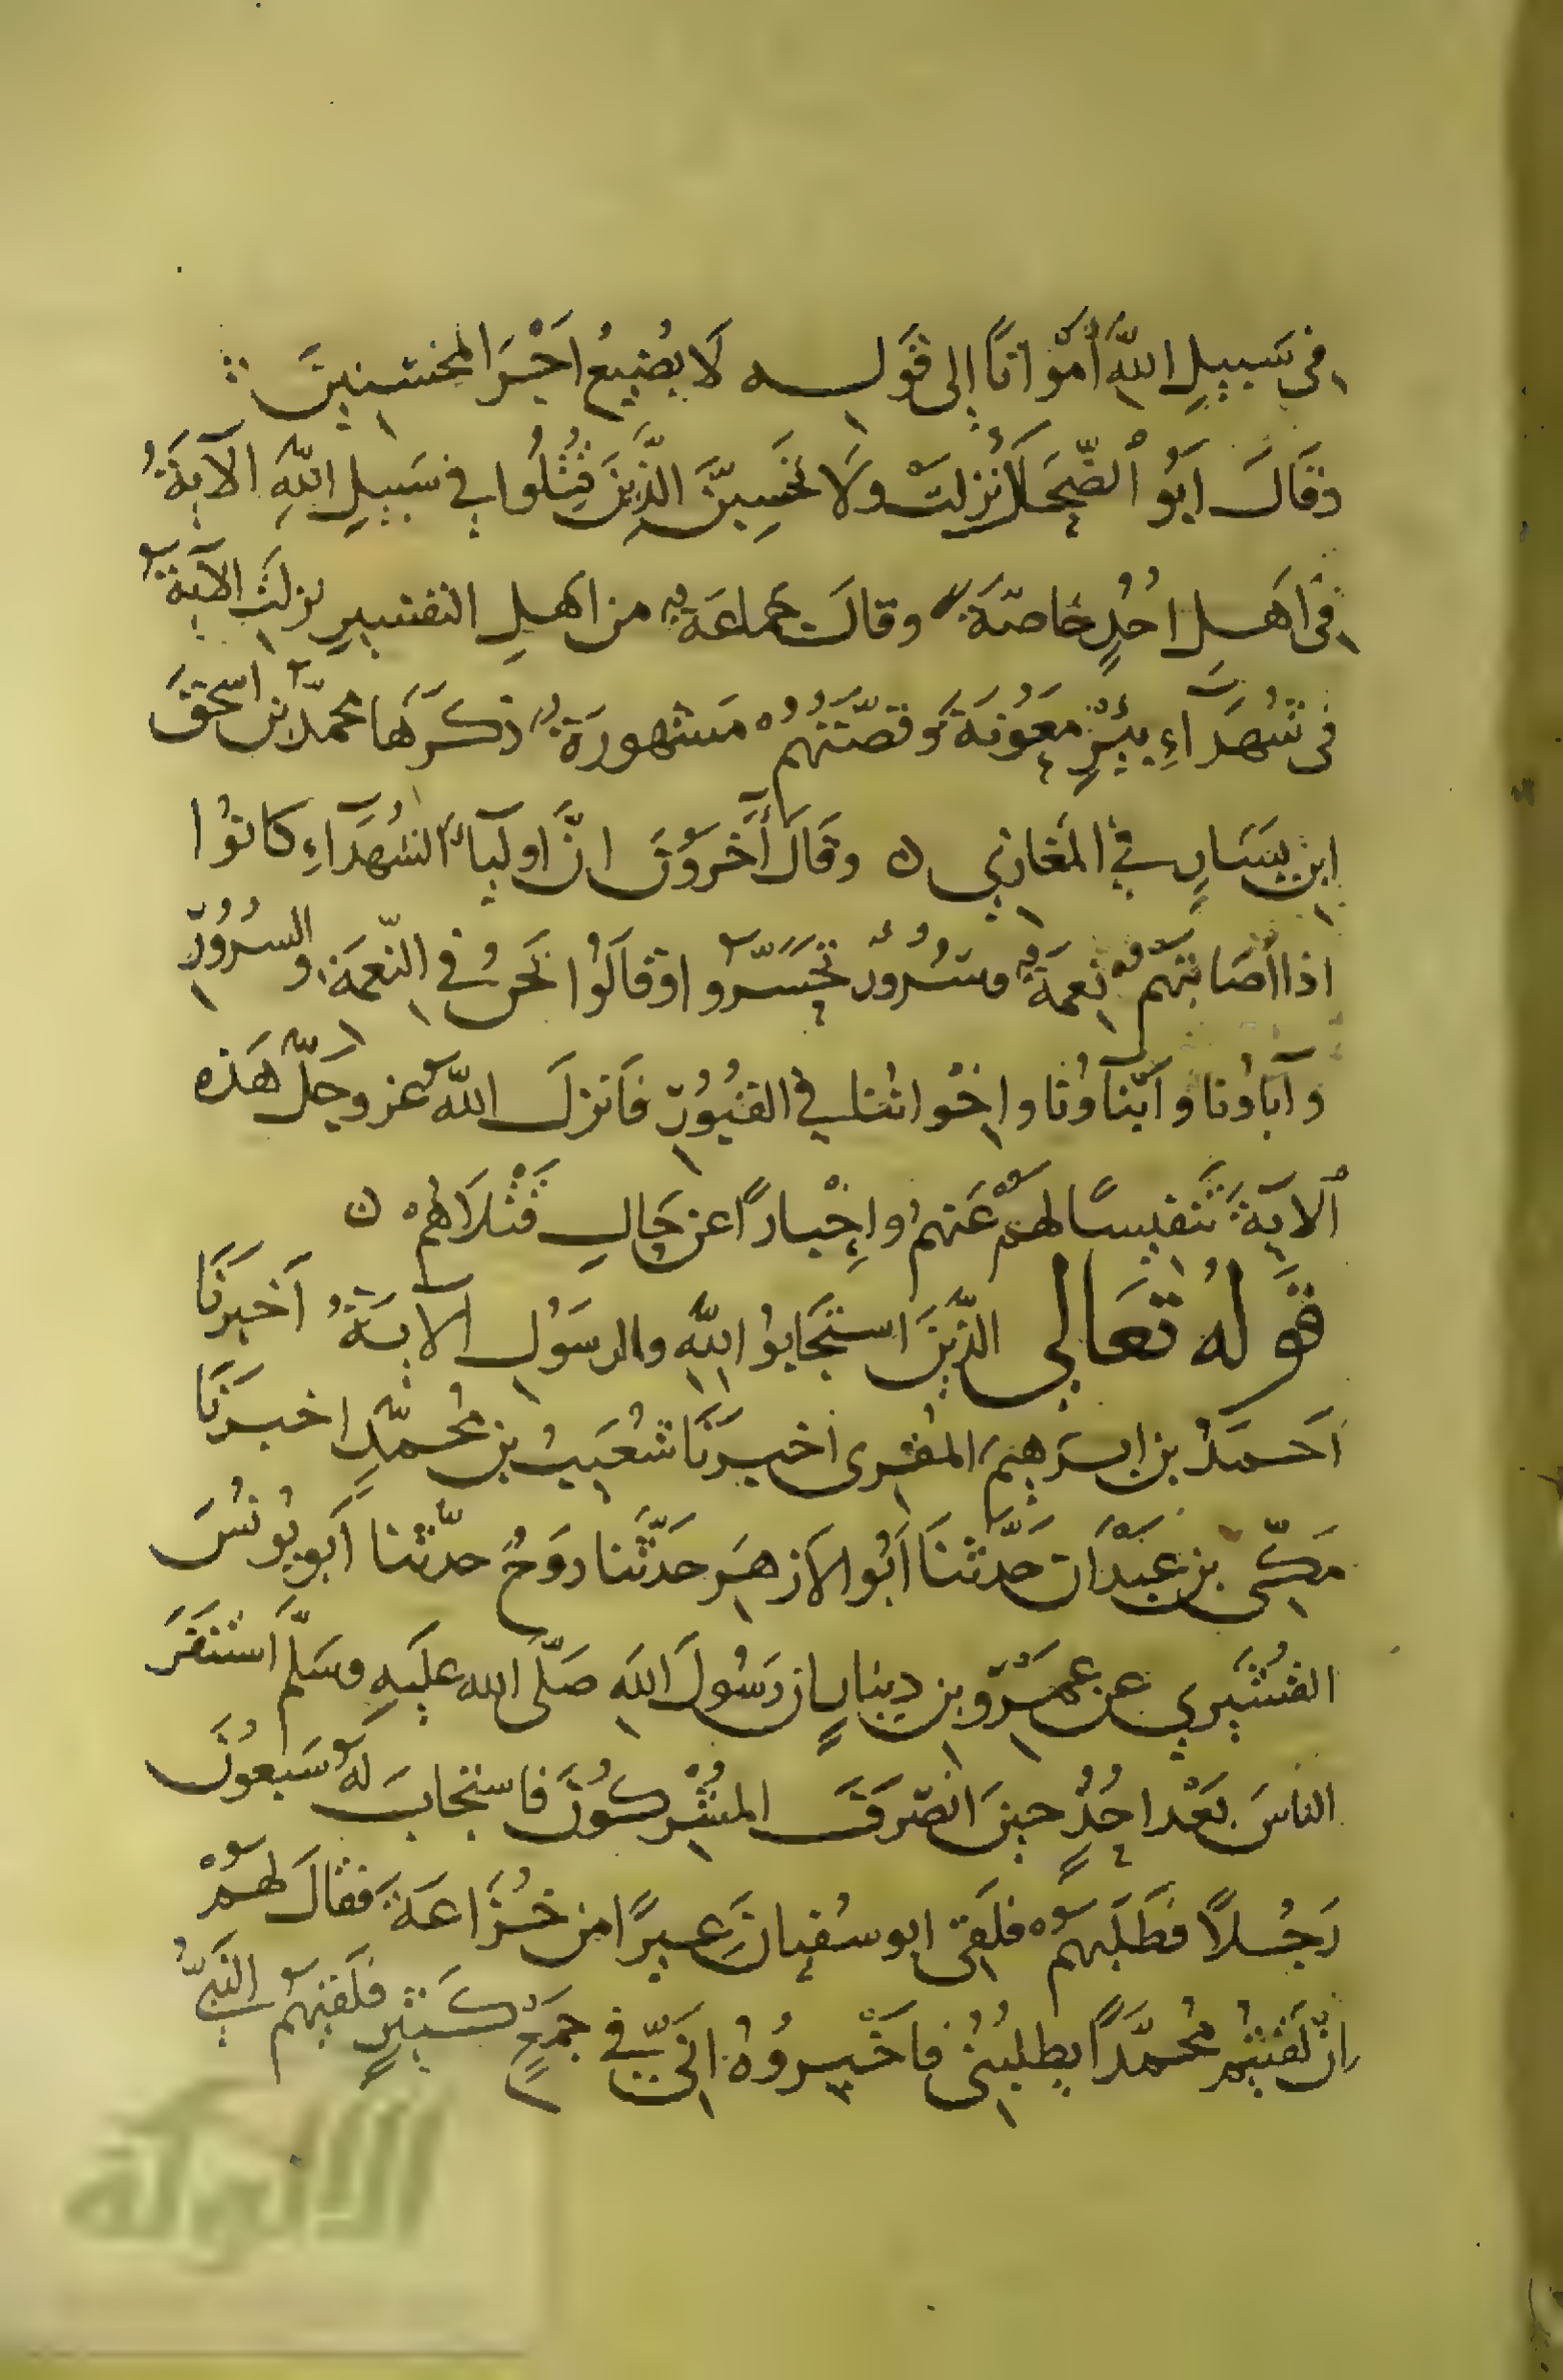 في سَبيلِ اللَّهِ أَمْوَاتًا إِلى قَوله لَا يُضِيعُ أَجْرَ المُحْسِنِينَ
وَقَالَ أَبُو الضُّحَى نَزَلَتْ وَلَا تَحْسِبَنَّ الَّذِينَ قُتِلُوا فِي سَبيلِ اللَّهِ الآيَةُ
في اَهل اُحُدٍ خاصّةً وقالَ جماعَةٌ من اهلِ التفسيرِ نزلت الآية
في شُهَدَآءِ بِئْرِ مَعُونَةَ وَقصّتُهُمْ مَشهورَةٌ ذكَرَها محمّدُ بن اسحقَ
ابنِ يَسَارٍ في المَغازي ه وقَالَ آخَرُوْنَ انَّ اولِيآءَ الشُهَدَآءِ كانُوا
اذا أصَابتهُم نِعمَةٌ وسُرُورٌ تحَسَّرُوا وقالُوا نَحنُ في النّعمَةِ والسرُورِ
وآباؤنا وأبنآؤنا واخْوانُنا في القبُورِ فَانزلَ اللّهُ عز وجلّ هَذه
الآيةَ تَنفيسًا لهم عَنهُم وإخْبارًا عن حَالِ قَتْلَاهُمْ ه
قَولُهُ تَعَالى الَّذِينَ استجَابُوا لِلَّهِ والرسَوُلِ الايَةُ أخبرنَا
أَحمَدُ بن ابرَهِيمَ المقرى أخبرَنَا شُعَيبُ بن مُحمَّدٍ اخبرَنَا
مَكِّيّ بن عَبْدَان حَدَّثنَا أَبُو الاَزهَرِ حَدَّثَنا رَوحٌ حدّثنا أَبو يُونُسَ
القُشَيري عن عَمْرو بن دِينارٍ ان رَسُولَ اللهِ صَلّى الله عليَهِ وسَلّمَ اَستَنفَرَ
الناسَ بَعْد احُدٍ حينَ انْصَرَفَ المُشْركُونَ فاستجابَ لَهُ سَبعُونَ
رَجُلاً فطَلَبَهُمْ فلَقِيَ ابو سُفيانَ عِيرًا من خُزَاعَةَ فقالَ لهُمْ
إنْ لَقيتُم مُحمَّدًا يطلبُني فاخْبِرُوهُ انّي في جَمعٍ كَثيرٍ فلَقيَهُم النَّبيُّ